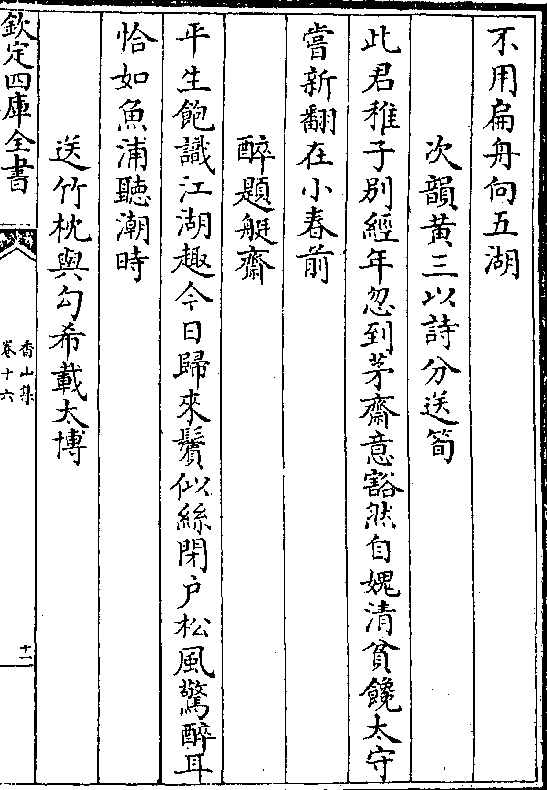 不用扁舟向五湖
次韻黄三以詩分送筍
此君稚子別經年忽到茅齋意豁然自媿清貧饞太守
嘗新翻在小春前
醉題艇齋
平生飽識江湖趣今日歸來鬢似絲閉户松風驚醉耳
恰如魚浦聽潮時
送竹枕與勾希載太博
欽定四庫全書
香山集
卷十六
十二